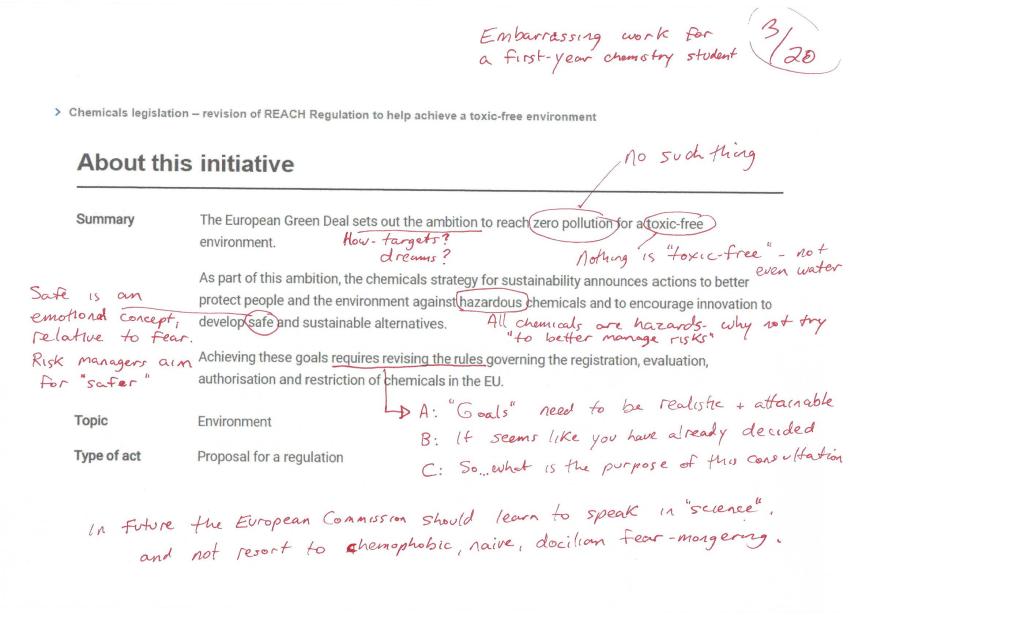 Embarrassing work for
a first-year chemistry student
3/20
> Chemicals legislation – revision of REACH Regulation to help achieve a toxic-free environment
About this initiative
no such thing
Summary
The European Green Deal sets out the ambition to reach zero pollution for a toxic-free
environment.
How - targets?
dreams?
Nothing is "toxic-free" - not
even water
As part of this ambition, the chemicals strategy for sustainability announces actions to better
protect people and the environment against hazardous chemicals and to encourage innovation to
develop safe and sustainable alternatives.
Safe is an
emotional concept,
relative to fear.
Risk managers aim
for "safer"
All chemicals are hazards - why not try
"to better manage risks"
Achieving these goals requires revising the rules governing the registration, evaluation,
authorisation and restriction of chemicals in the EU.
A: "Goals" need to be realistic + attainable
B: It seems like you have already decided
C: So...what is the purpose of this consultation
Topic
Environment
Type of act
Proposal for a regulation
In future the European Commission should learn to speak in "science".
and not resort to chemophobic, naive, docilian fear-mongering.